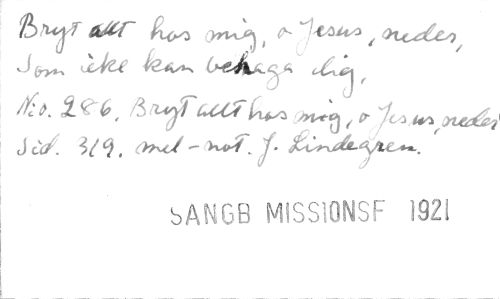 Bryt allt hos mig, o Jesus, neder,
Som icke kan behaga dig,
No. 286. Bryt allt hos mig, o Jesus, neder
Sid. 319. mel-not. J. Lindegren.
SANGB MISSIONSF 1921